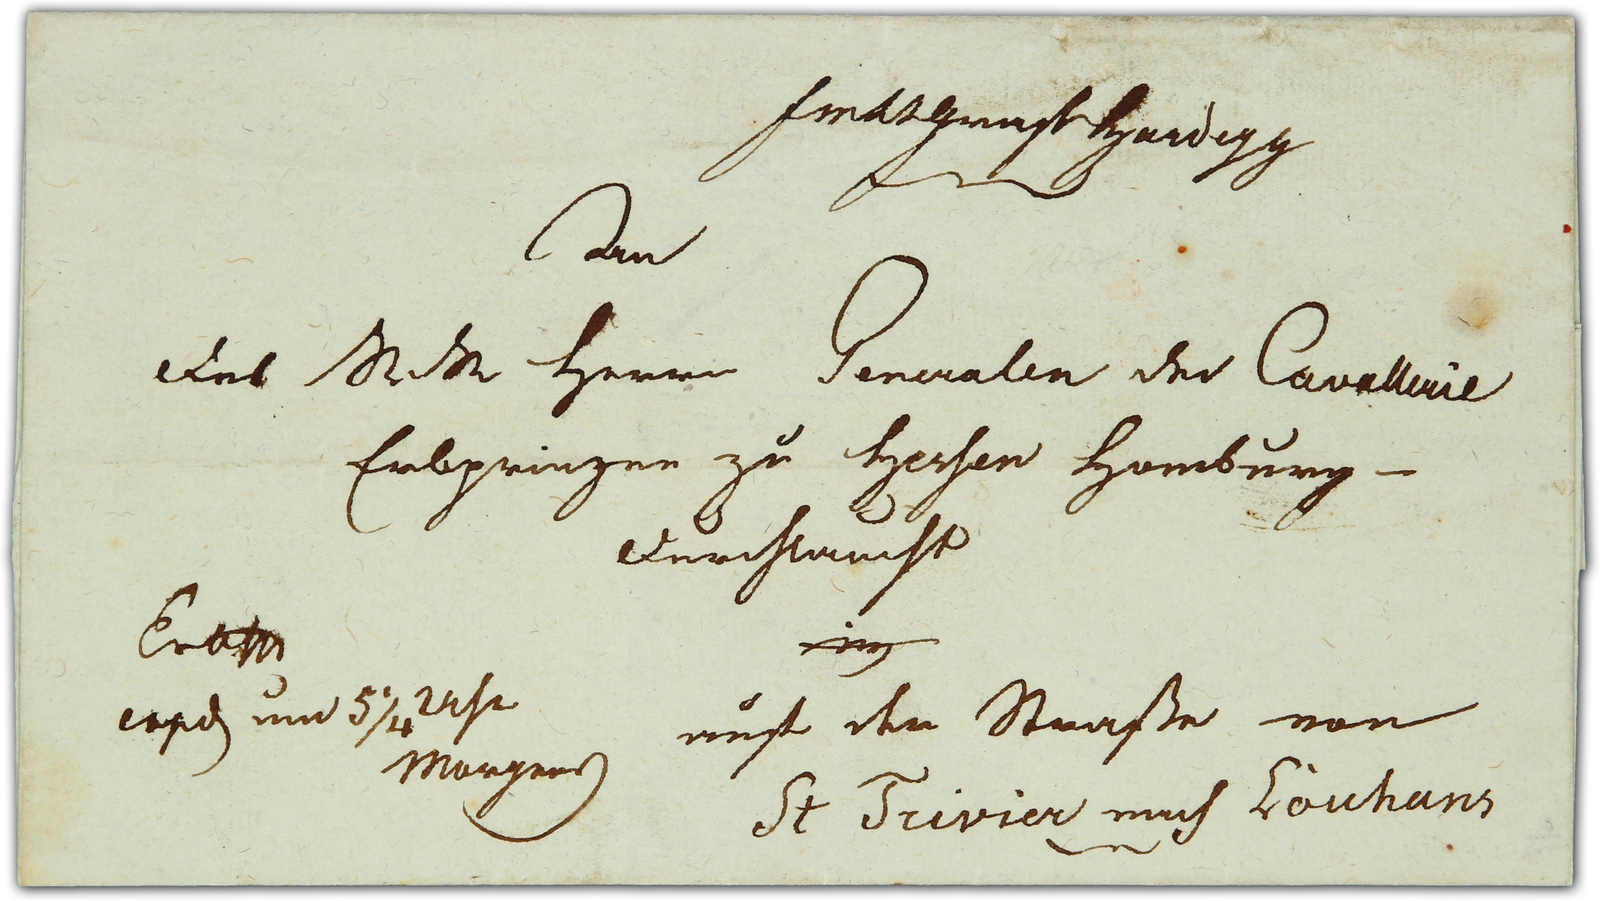 FMLt Graf Hardegg
An
des K. K. Herrn Generalen der Cavallerie
Erbprinzen zu Hessen Homburg –
Durchlaucht
auf der Straße von
St Trivier nach Louhans
expd um 5 1/4 Uhr
Morgens